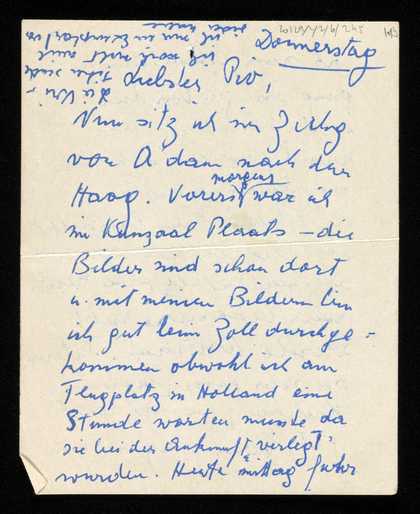 Donnerstag
Liebster Pio,
Nun sitz ich im Zug
von A'dam nach den
Haag. Vorerst morgens war ich
im Kunzaal Plaats – die
Bilder sind schon dort
u. mit meinen Bildern bin
ich gut beim Zoll durchge-
kommen obwohl ich am
Flugplatz in Holland eine
Stunde warten musste da
sie bei der Ankunft verlegt
wurden. Heute mittag fuhr